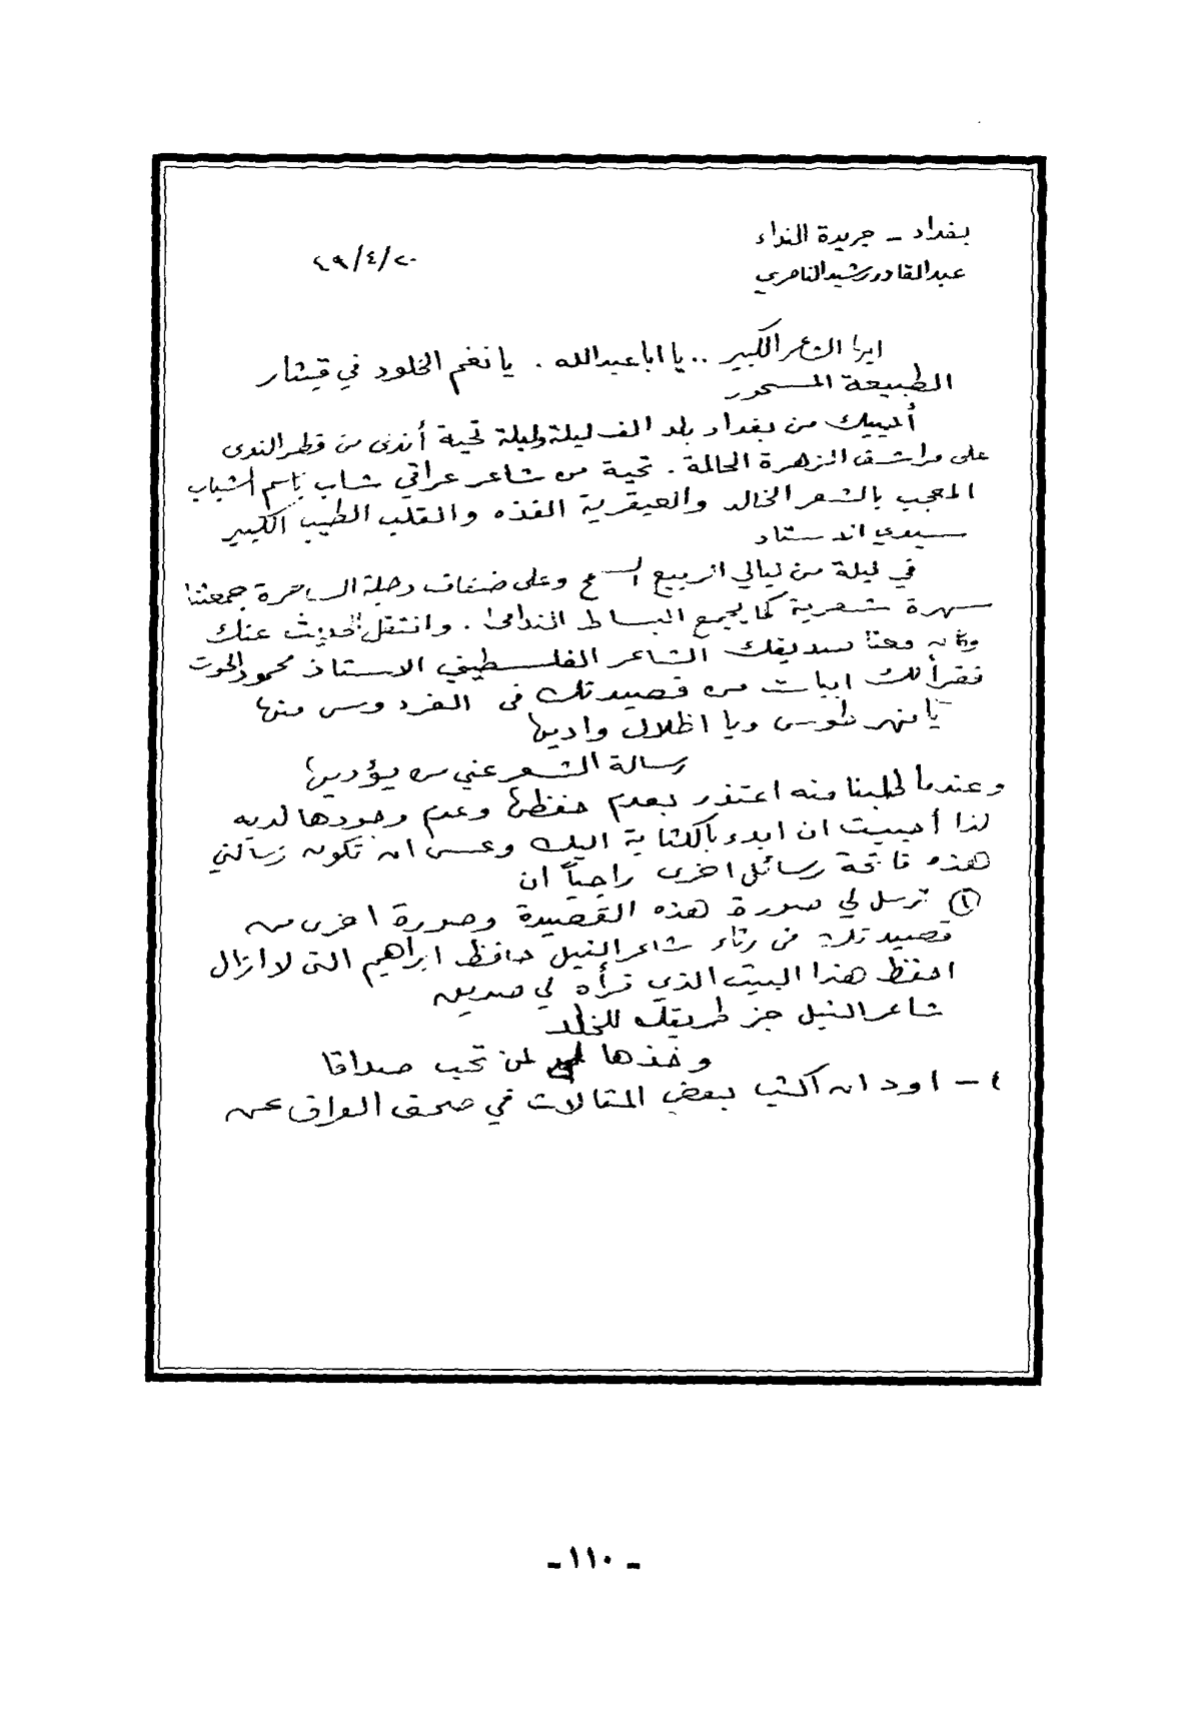 بغداد - جريدة النداء
٤٩/٤/٢٠
عبدالقادر رشيد الناصري
ايها الشاعر الكبير .. يا ابا عبدالله . يا نغم الخلود في قيثار
الطبيعة المسحور
أحييك من بغداد بلد الف ليلة وليلة تحية أندى من قطر الندى
على مراشف الزهرة الحالمة . تحية من شاعر عراقي شاب باسم الشباب
المعجب بالشعر الخالد والعبقرية الفذه والقلب الطيب الكبير
سيدي الاستاذ
في ليلة من ليالي الربيع وعلى ضفاف دجلة الساحرة جمعتنا
سهرة شعرية كما يجمع البساط الندامى . وانتقل الحديث عنك
وكان معنا صديقك الشاعر الفلسطيني الاستاذ محمود الحوت
فقرأ لك ابيات من قصيدتك في الفردوسي منها
يا نهر طوس ويا اظلال واديها
رسالة الشعر عني من يؤديها
وعندما طلبنا منه اعتذر بعدم حفظها وعدم وجودها لديه
لذا أحببت ان ابدء بالكتابة اليك وعسى ان تكون رسالتي
هذه فاتحة رسائل اخرى راجياً ان
١ ترسل لي صورة هذه القصيدة وصورة اخرى من
قصيدتك في رثاء شاعر النيل حافظ ابراهيم التي لا ازال
احفظ هذا البيت الذي قرأه لي صديق
شاعر النيل جز طريقك للخلد
وخذها لمن تحب صداقا
٤ - اود ان اكتب بعض المقالات في صحف العراق عن
- ١١٠ -